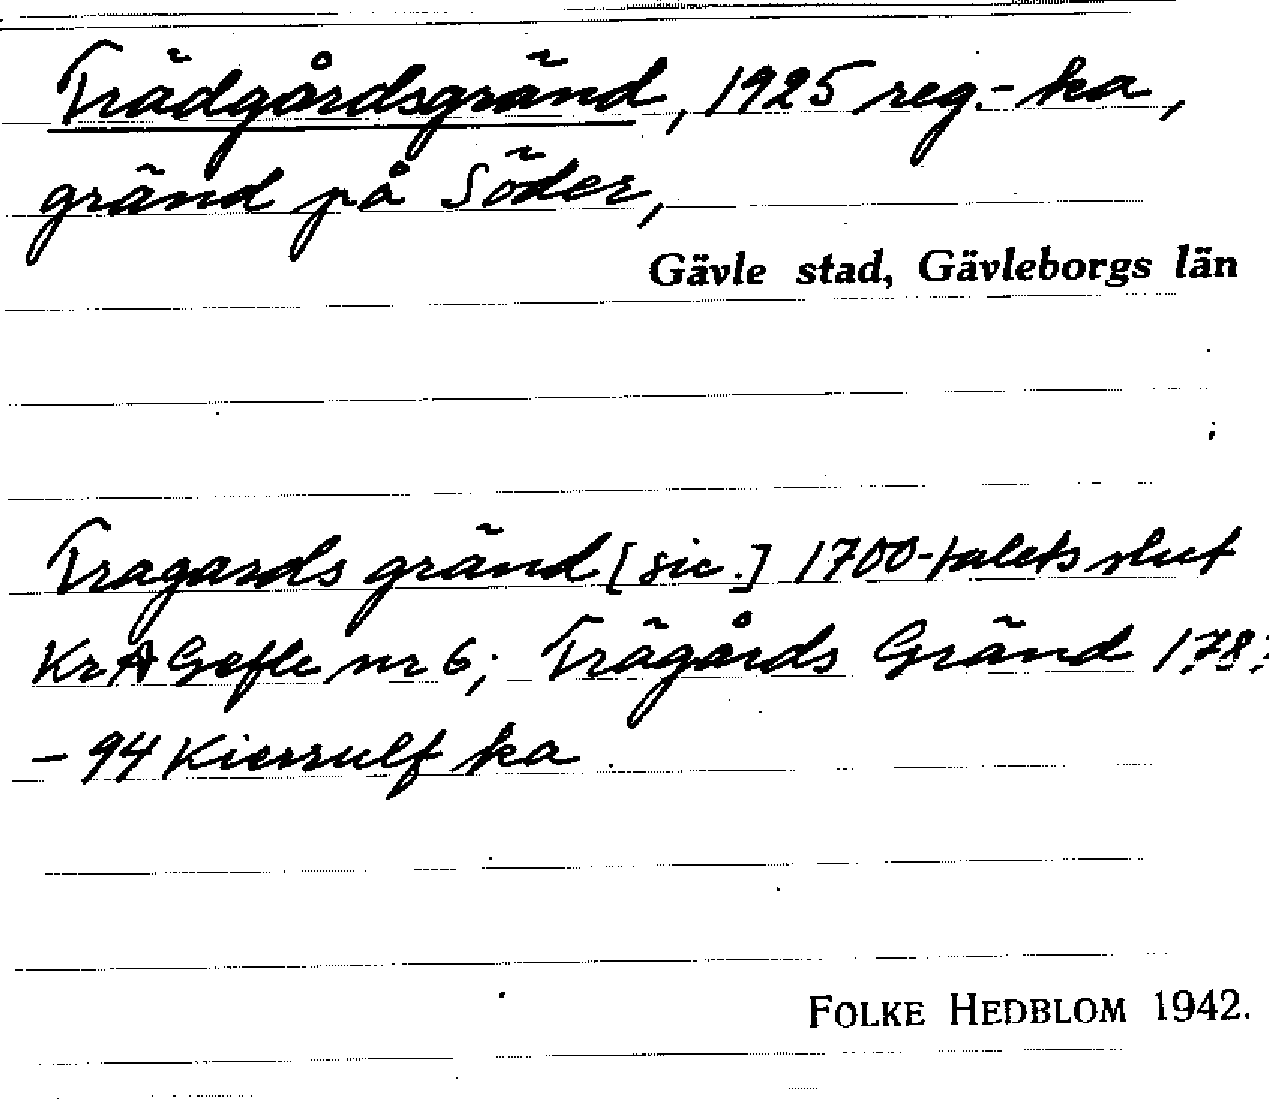 Trädgårdsgränd, 1925 reg.-ka,
gränd på Söder,
Gävle stad, Gävleborgs län
Tragards gränd [sic.] 1700-talets slut
KrA Gefle nr 6; Trägårds Gränd
- 94 Kierrulf ka.
FOLKE HEDBLOM 1942.